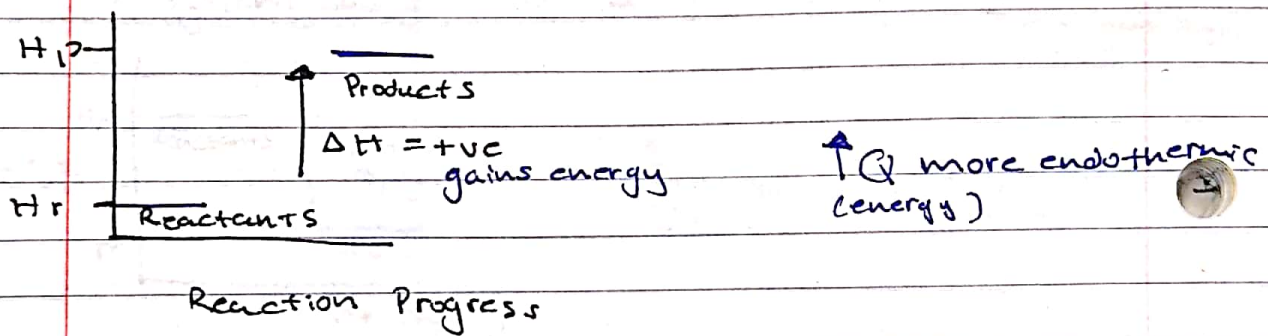 Hp
Products
ΔH = +ve
gains energy
↑ Q more endothermic
(energy)
Hr
Reactants
Reaction Progress